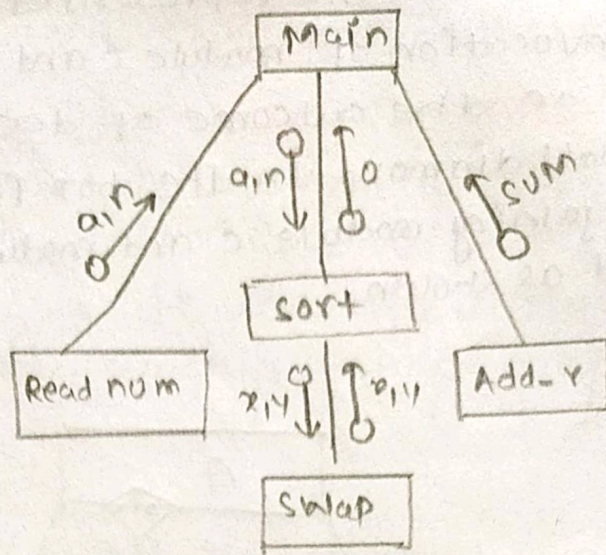 Main
a,n
a,n
a
sum
sort
Read num
x,y
x,y
Add-r
swap